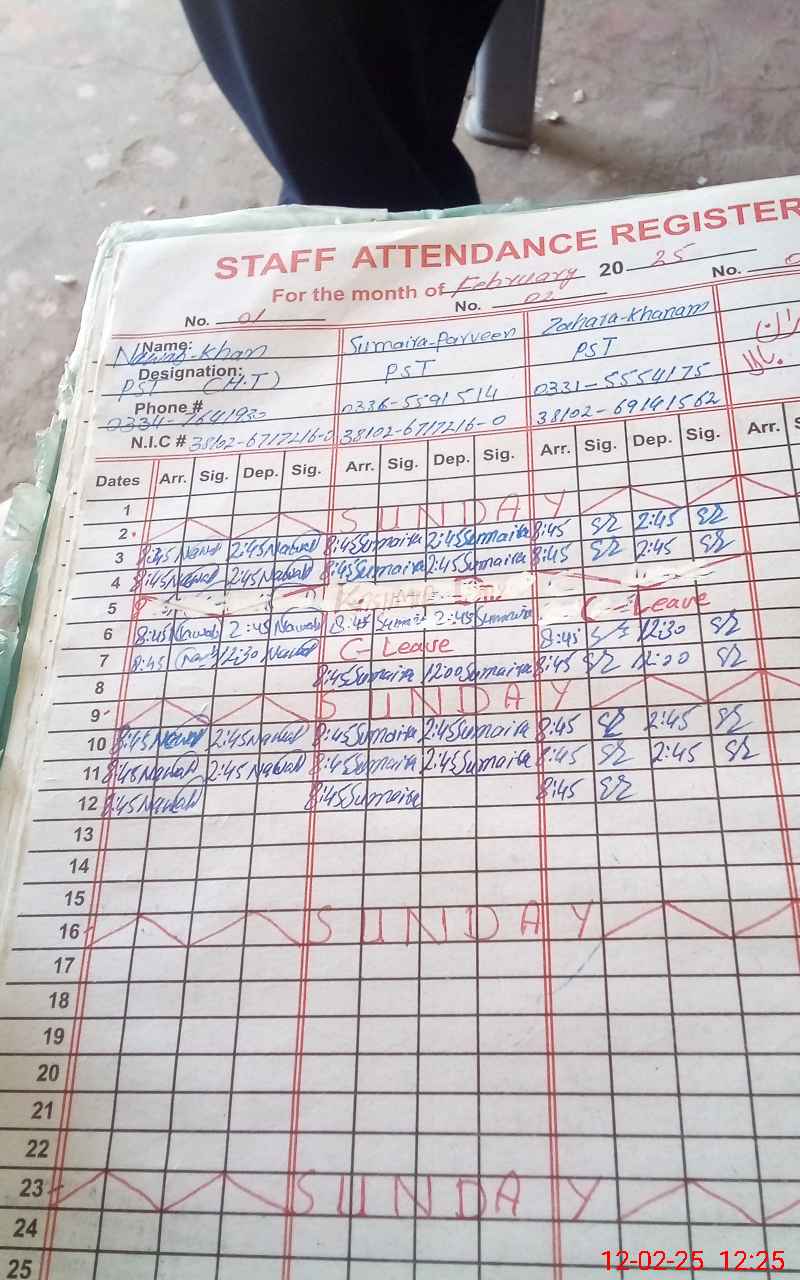 STAFF ATTENDANCE REGISTER
For the month of February 20 25
No. 01 No. 02 No.
Name: Nawab-Khan Sumaira-Parveen Zahara-Khanam
Designation: PST (H.T) PST PST
Phone # 0334-7641930 0336-5591514 0331-5554175
N.I.C # 38102-6717216-0 38102-6717216-0 38102-69141562
Dates Arr. Sig. Dep. Sig. Arr. Sig. Dep. Sig. Arr. Sig. Dep. Sig. Arr.
1
2 SUNDAY
3 8:45 Nawab 2:45 Nawab 8:45 Sumaira 2:45 Sumaira 8:45 2:45
4 8:45 Nawab 2:45 Nawab 8:45 Sumaira 2:45 Sumaira 8:45 2:45
5 Kashmir Day
6 8:45 Nawab 2:45 Nawab 8:45 Sumaira 2:45 Sumaira C-Leave
7 8:45 Nawab 12:30 Nawab C-Leave 8:45 12:30
8 8:45 Sumaira 12:00 Sumaira 8:45 12:00
9 SUNDAY
10 8:45 Nawab 2:45 Nawab 8:45 Sumaira 2:45 Sumaira 8:45 2:45
11 8:45 Nawab 2:45 Nawab 8:45 Sumaira 2:45 Sumaira 8:45 2:45
12 8:45 Nawab 8:45 Sumaira 8:45
13
14
15
16 SUNDAY
17
18
19
20
21
22
23 SUNDAY
24
25
12-02-25 12:25